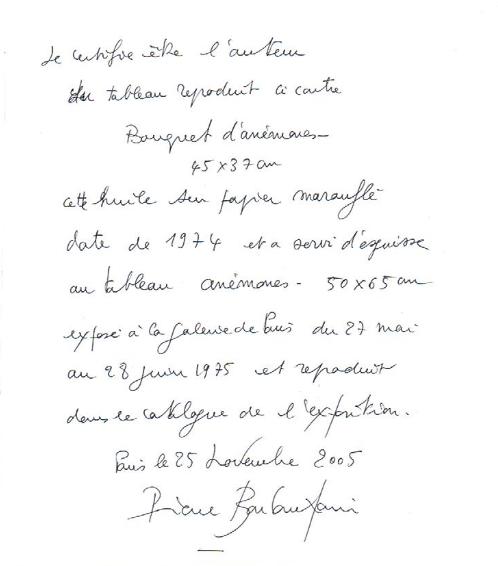 Je certifie être l'auteur
du tableau reproduit ci contre
Bouquet d'anémones -
45 x 37 cm
cette huile sur papier marouflé
date de 1974 et a servi d'esquisse
au tableau anémones - 50 x 65 cm
exposé à la Galerie de Paris du 27 mai
au 28 juin 1975 et reproduit
dans le catalogue de l'exposition.
Paris le 25 Novembre 2005